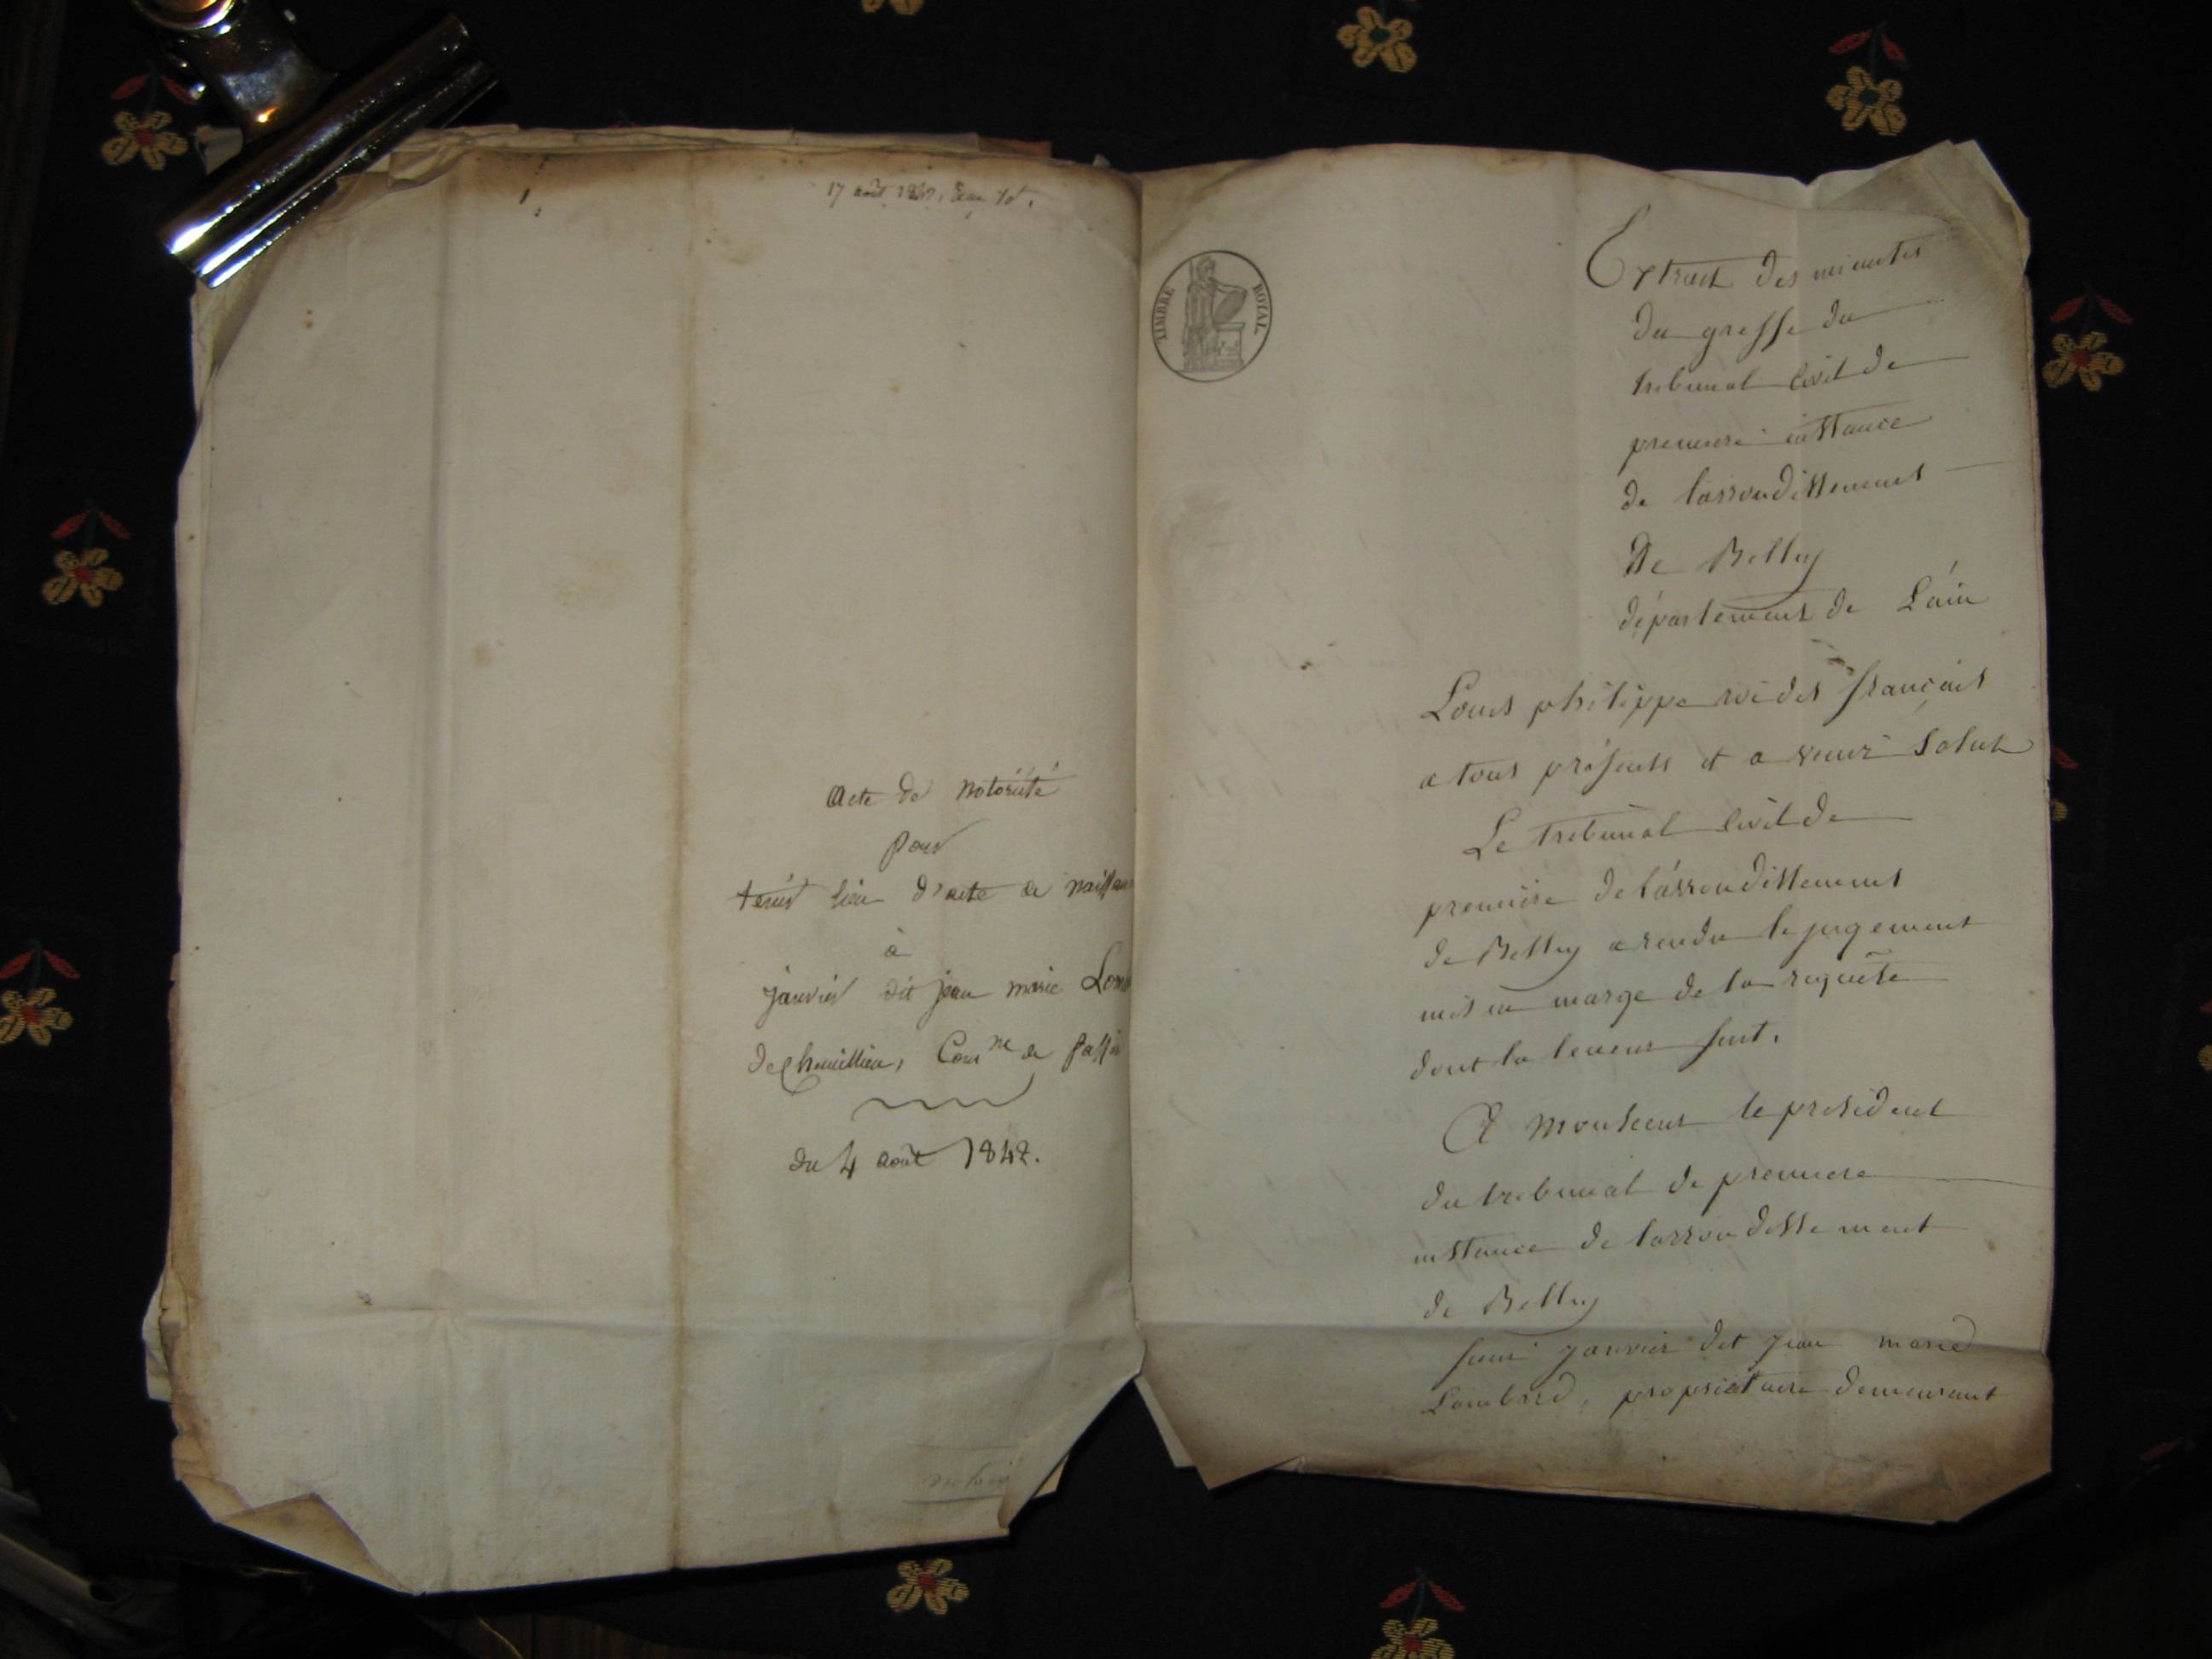 17 août
acte de notoriété
pour
tenir lieu d'acte de naissan
à
janvier dit jean marie Lom
de Com.ne de
du 4 août 1842.
TIMBRE ROYAL
Extrait des minutes
du greffe du
tribunal civil de
premiere instance
de larrondissement
De Belley
département de L'ain
Louis philippe roi des français
a tous présents et a venir Salut
Le tribunal civil de
première de l'arrondissement
de Belley a rendu le jugement
mis en marge de la requête
dont la teneur suit.
A monsieur le president
du tribunal de premiere
instance de larrondissement
de Belley
sieur janvier dit jean marie
Lombard, propriétaire demeurant